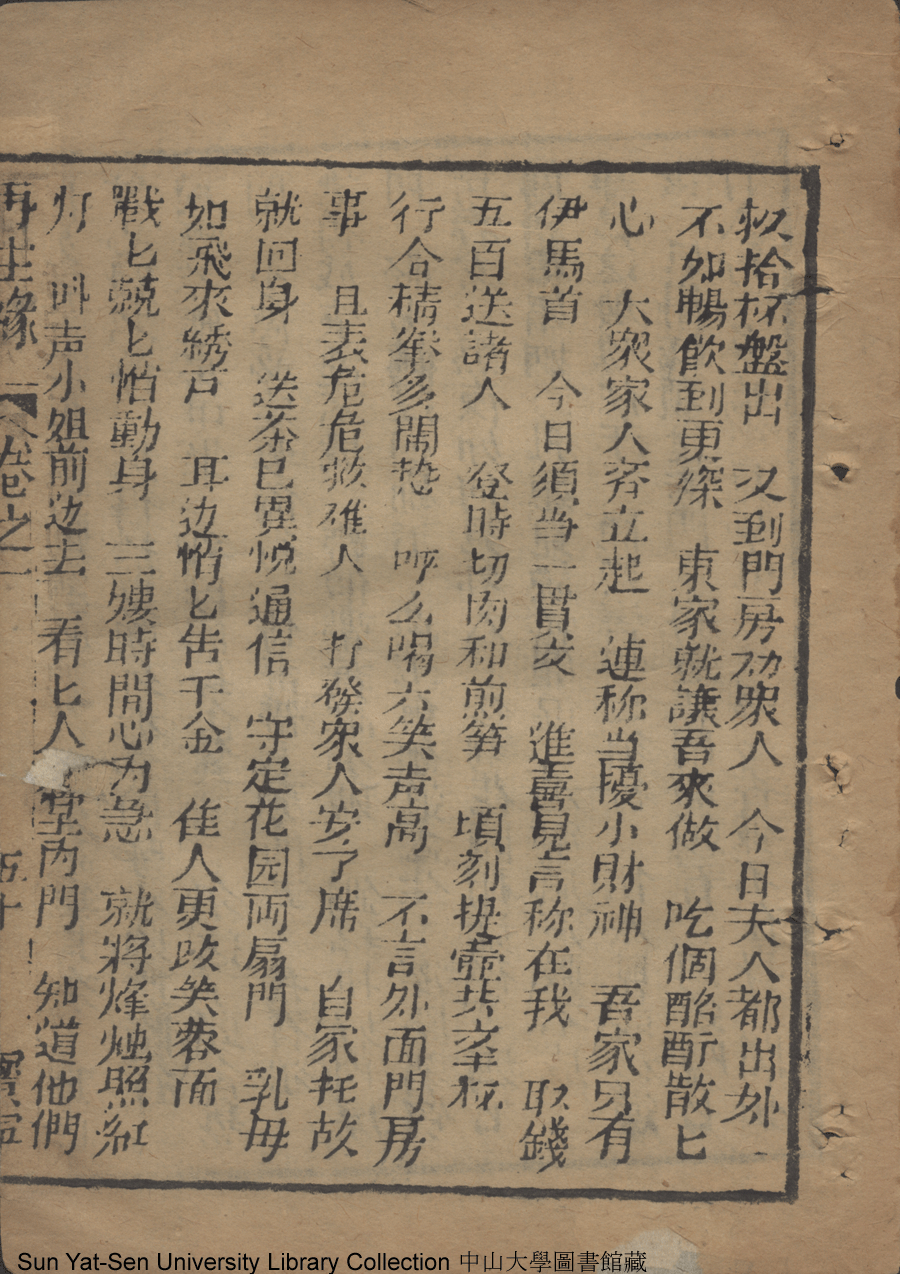 収拾杯盤出 又到門房劝眾人 今日夫人都出外
不如暢飲到更深 東家就讓吾來做 吃個酩酊散匕
心 大眾家人斉立起 連称当擾小財神 吾家另有
伊馬首 今日須当一貫交 進喜見言称在我 取錢
五百送諸人 登時切肉和煎笋 頃刻提壺共举杯
行合精拳多閙热 呼么喝六笑声高 不言外面門房
事 且表危危救难人 打発家人安了席 自家托故
就回身 送茶已畢悦通信 守定花园両扇門 乳母
如飛來綉戸 耳边悄匕告千金 佳人更改笑蓉面
戰匕兢匕怕動身 三嫂時間心为急 就將烽烛照紅
灯 叫声小姐前边去 看匕人 堂內門 知道他們
再生緣 卷之 五十 寶寧
Sun Yat-Sen University Library Collection 中山大學圖書館藏